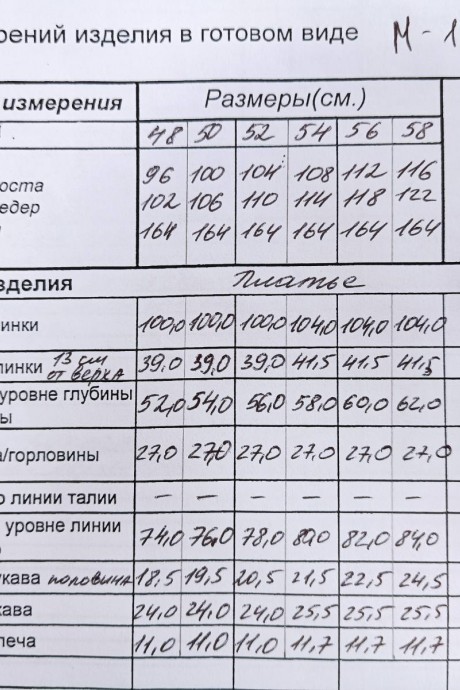 рений изделия в готовом виде М-1
измерения Размеры(см.)
48 50 52 54 56 58
96 100 104 108 112 116
оста 102 106 110 114 118 122
едер
164 164 164 164 164 164
зделия Платье
инки 100,0 100,0 100,0 104,0 104,0 104,0
линки 13 см от верха 39,0 39,0 39,0 41,5 41,5 41,5
уровне глубины
ы 52,0 54,0 56,0 58,0 60,0 62,0
а/горловины 27,0 27,0 27,0 27,0 27,0 27,0
о линии талии – – – – – –
уровне линии
74,0 76,0 78,0 80,0 82,0 84,0
укава половина 18,5 19,5 20,5 21,5 22,5 24,5
кава 24,0 24,0 24,0 25,5 25,5 25,5
леча 11,0 11,0 11,0 11,7 11,7 11,7